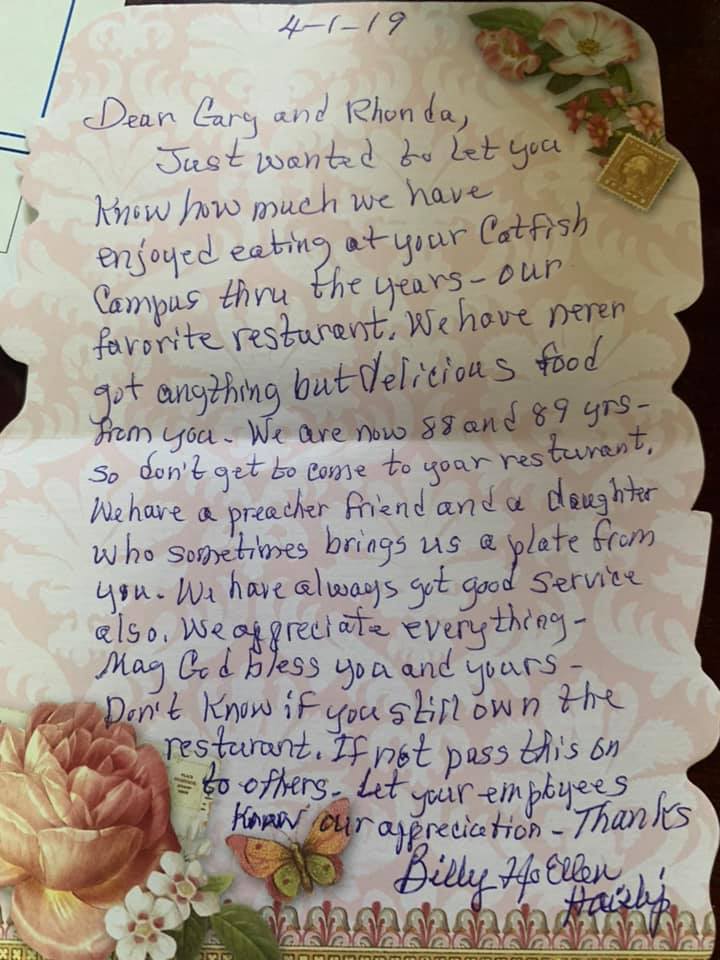 4-1-19
Dear Gary and Rhonda,
Just wanted to let you
Know how much we have
enjoyed eating at your Catfish
Campus thru the years - our
favorite resturant. We have never
got anything but delicious food
from you. We are now 88 and 89 yrs -
so don't get to come to your resturant.
We have a preacher friend and a daughter
who sometimes brings us a plate from
you. We have always got good service
also. We appreciate everything -
May God bless you and yours -
Don't Know if you still own the
resturant. If not pass this on
to others - Let your employees
Know our appreciation - Thanks
Billy Ellen